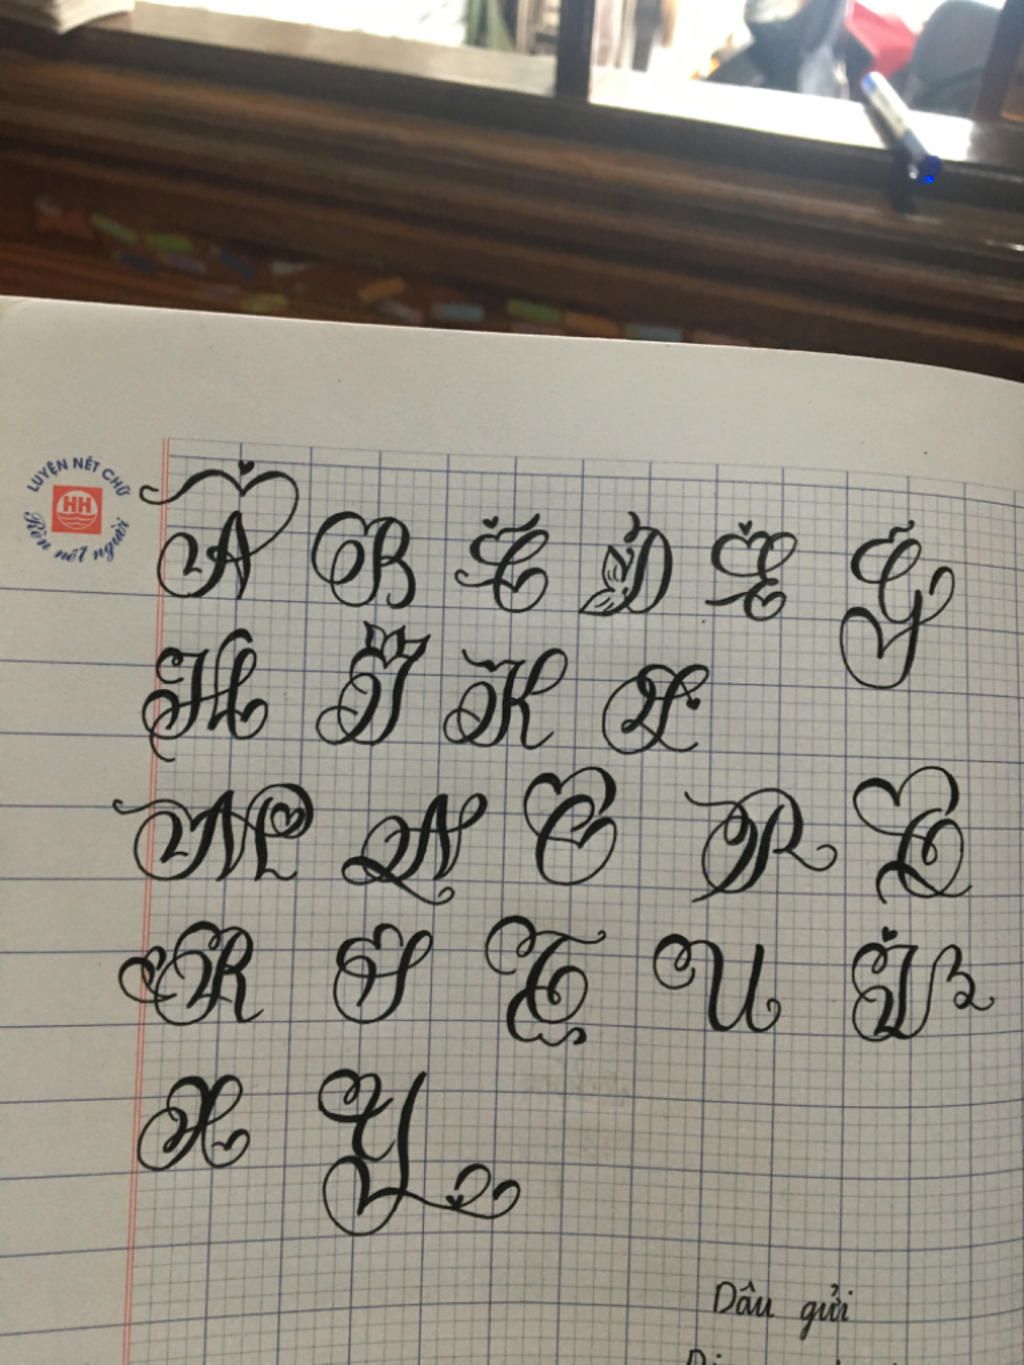 LUYỆN NÉT CHỮ
HH
Rèn nết người
A B C D E G
H I K L
M N O P Q
R S T U V
X Y
Dấu gửi